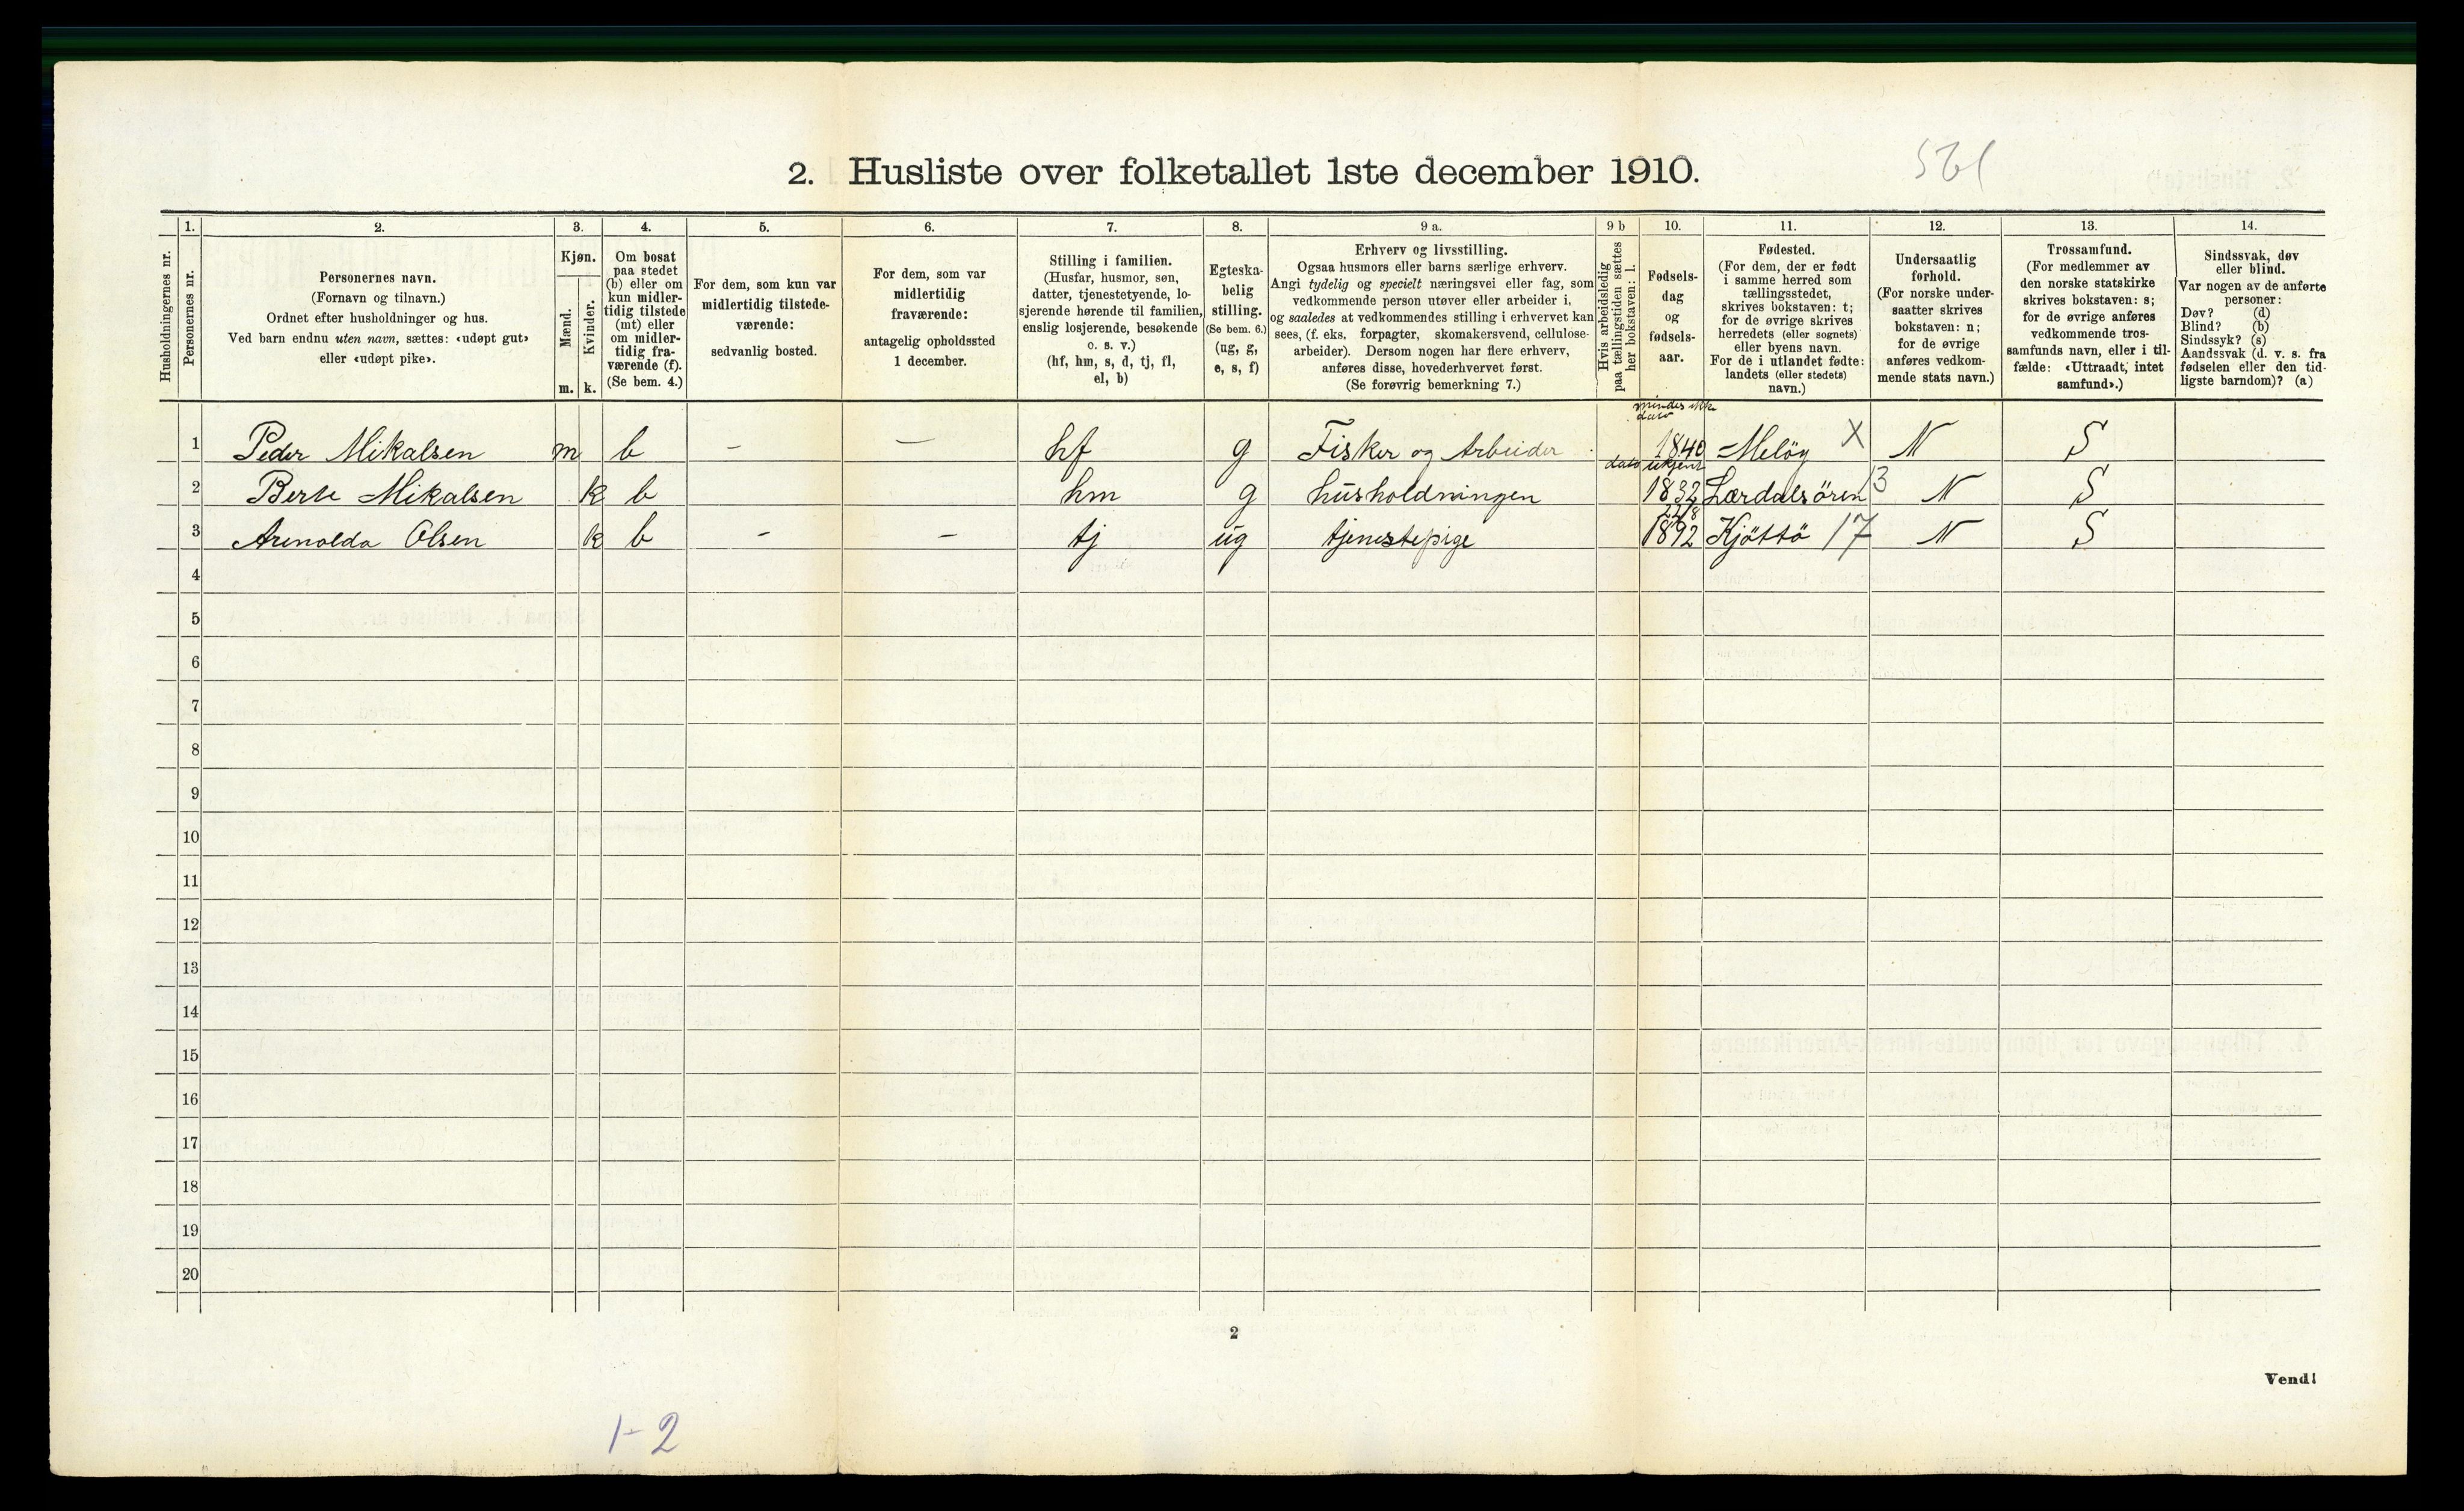 561
2. Husliste over folketallet 1ste december 1910.
Husholdningernes nr.
1.
Personernes nr.
2.
Personernes navn.
(Fornavn og tilnavn.)
Ordnet efter husholdninger og hus.
Ved barn endnu uten navn, sættes: «udøpt gut»
eller «udøpt pike».
3.
Kjøn.
Mænd.
Kvinder.
m. k.
4.
Om bosat
paa stedet
(b) eller om
kun midler-
tidig tilstede
(mt) eller
om midler-
tidig fra-
værende (f).
(Se bem. 4.)
5.
For dem, som kun var
midlertidig tilstede-
værende:
sedvanlig bosted.
6.
For dem, som var
midlertidig
fraværende:
antagelig opholdssted
1 december.
7.
Stilling i familien.
(Husfar, husmor, søn,
datter, tjenestetyende, lo-
sjerende hørende til familien,
enslig losjerende, besøkende
o. s. v.)
(hf, hm, s, d, tj, fl,
el, b)
8.
Egteska-
belig
stilling.
(Se bem. 6.)
(ug, g,
e, s, f)
9 a.
Erhverv og livsstilling.
Ogsaa husmors eller barns særlige erhverv.
Angi tydelig og specielt næringsvei eller fag, som
vedkommende person utøver eller arbeider i,
og saaledes at vedkommendes stilling i erhvervet kan
sees, (f. eks. forpagter, skomakersvend, cellulose-
arbeider). Dersom nogen har flere erhverv,
anføres disse, hovederhvervet først.
(Se forøvrig bemerkning 7.)
9 b
Hvis arbeidsledig
paa tællingstiden sættes
her bokstaven: l.
10.
Fødsels-
dag
og
fødsels-
aar.
11.
Fødested.
(For dem, der er født
i samme herred som
tællingsstedet,
skrives bokstaven: t;
for de øvrige skrives
herredets (eller sognets)
eller byens navn.
For de i utlandet fødte:
landets (eller stedets)
navn.)
12.
Undersaatlig
forhold.
(For norske under-
saatter skrives
bokstaven: n;
for de øvrige
anføres vedkom-
mende stats navn.)
13.
Trossamfund.
(For medlemmer av
den norske statskirke
skrives bokstaven: s;
for de øvrige anføres
vedkommende tros-
samfunds navn, eller i til-
fælde: «Uttraadt, intet
samfund».)
14.
Sindssvak, døv
eller blind.
Var nogen av de anførte
personer:
Døv? (d)
Blind? (b)
Sindssyk? (s)
Aandssvak (d. v. s. fra
fødselen eller den tid-
ligste barndom)? (a)
mindes ikke
dato
1 Peder Mikalsen m b – – hf g Fisker og Arbeider 1840 Meløy X N S
dato ukjent
2 Berte Mikalsen k b hm g husholdningen 1832 Lærdalsören 3 N S
22/8
3 Arenolda Olsen k b - - tj ug tjenestepige 1892 Kjöttö 17 N S
4
5
6
7
8
9
10
11
12
13
14
15
16
17
18
19
20
2
Vend!
1-2